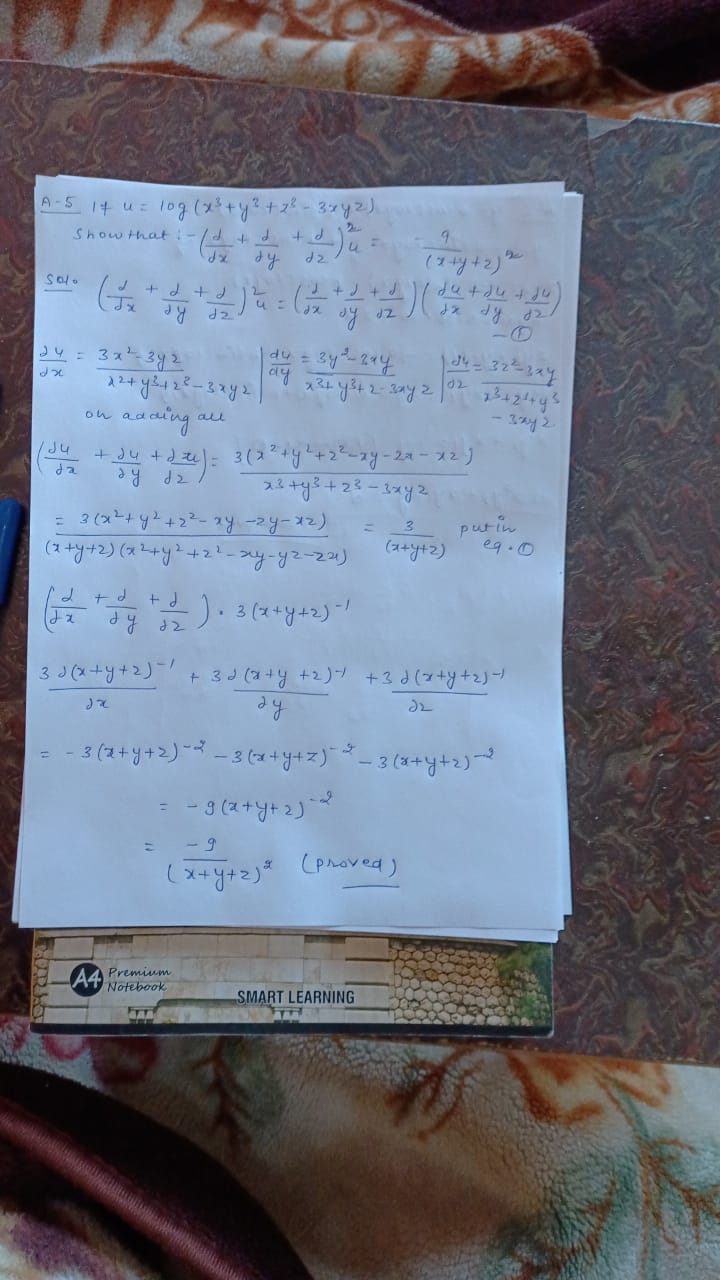 A-5 If u = log (x³+y³+z³-3xyz)
Show that :- (∂/∂x + ∂/∂y + ∂/∂z)² u = -9/(x+y+z)²
Soln (∂/∂x + ∂/∂y + ∂/∂z)² u = (∂/∂x + ∂/∂y + ∂/∂z) (∂u/∂x + ∂u/∂y + ∂u/∂z) — ①
∂u/∂x = (3x²-3yz)/(x²+y³+z³-3xyz) | ∂u/∂y = (3y²-3xy)/(x³+y³+z-3xyz) | ∂u/∂z = (3z²-3xy)/(x³+z³+y³-3xyz)
on adding all
(∂u/∂x + ∂u/∂y + ∂u/∂z) = 3(x²+y²+z²-xy-zx-xz)/(x³+y³+z³-3xyz)
= 3(x²+y²+z²-xy-zy-xz)/((x+y+z)(x²+y²+z²-xy-yz-zx)) = 3/(x+y+z) put in eq. ①
(∂/∂x + ∂/∂y + ∂/∂z) · 3(x+y+z)⁻¹
3∂(x+y+z)⁻¹/∂x + 3∂(x+y+z)⁻¹/∂y + 3∂(x+y+z)⁻¹/∂z
= -3(x+y+z)⁻² - 3(x+y+z)⁻² - 3(x+y+z)⁻²
= -9(x+y+z)⁻²
= -9/(x+y+z)² (proved)
A4 Premium
Notebook
SMART LEARNING